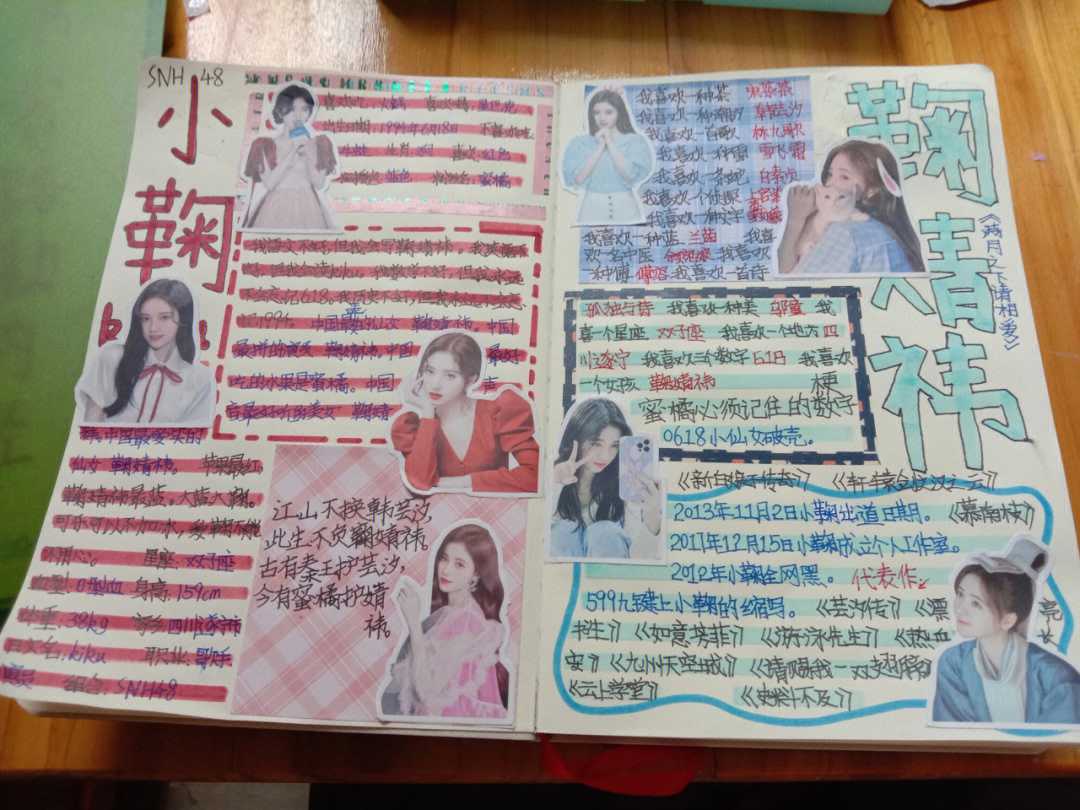 SNH 48
小鞠
喜欢吃:火锅 喜欢喝:星巴克
出生日期:1994年6月18日 不喜欢吃:
牛蛙 生肖:狗 喜欢:红色
蓝色 粉丝名:蜜橘
我语文不好,但我会写鞠婧祎。我英语不
好,但我会读kiku。我数学不好,但我永远
不会忘记618。我历史不好,但我永远不会忘
记1994。中国最美的仙女 鞠婧祎。中国
最拼的演员 鞠婧祎。中国 最好
吃的水果是蜜橘。中国 声
音最好听的美女 鞠婧
祎。中国最爱笑的
仙女 鞠婧祎。 苹果最红,
鞠婧祎最蓝。大蓝大鞠。
可乐可以不加冰,爱鞠不能
不用心。 星座:双子座
血型:O型血 身高:159cm
体重:38kg 家乡:四川遂宁
日文名:kiku 职业:歌手
演员 组合:SNH48
江山不换韩芸汐,
此生不负鞠婧祎。
古有秦王护芸汐,
今有蜜橘护婧
祎。
我喜欢一种茶
我喜欢一种潮汐 韩芸汐
我喜欢一首歌 林九歌
我喜欢一种雪 雪飞霜
我喜欢一条蛇 白素贞
我喜欢一个侦探 上官紫
我喜欢一种文字
我喜欢一种蓝 兰茵 我喜
欢一名中医 我喜欢
一种傅 傅容 我喜欢一首诗
孤独与诗 我喜欢一种美 我
喜一个星座 双子座 我喜欢一个地方 四
川遂宁 我喜欢三个数字 618 我喜欢
一个女孩 鞠婧祎 梗
蜜橘必须记住的数字
0618小仙女破壳。
鞠婧祎
《如月之 请相爱》
《新白娘子传奇》 《轩辕剑之汉之云》
2013年11月2日小鞠出道日期。《慕南枝》
2017年12月15日小鞠成立个人工作室。
2012年小鞠全网黑。 代表作:
599九键上小鞠的缩写。《芸汐传》《漂
亮书生》《如意芳菲》《流行先生》《热血
长安》《九州天空城》《请赐我一双翅膀》
《云上学堂》 《史柴不及》